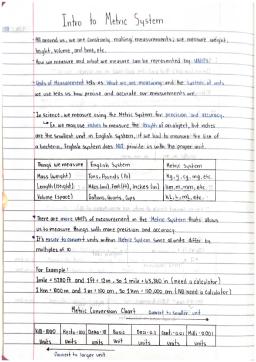 Intro to Metric System
All around us, we are constantly making measurements; we measure weight,
height, volume, and time, etc.
How we measure and what we measure can be represented by UNITS!
Units of Measurement tells us what we are measuring and the system of units
we use tells us how precise and accurate our measurements are.
In science, we measure using the Metric System for precision and accuracy.
Ex. we may use inches to measure the length of an object, but inches
are the smallest unit in English System, if we had to measure the size of
a bacteria, English System does NOT provide us with the proper unit.
Things we measure English System Metric System
Mass (weight) Tons, Pounds (lb) kg, g, cg, mg, etc.
Length (Height) Miles (mi), Feet (ft), Inches (in) km, m, mm, etc.
Volume (space) Gallons, Quarts, Cups kL, L, mL, etc.
There are more UNITS of measurement in the Metric System that allows
us to measure things with more precision and accuracy.
It's easier to convert units within Metric System since all units differ by
multiples of 10
For Example!
1 mile = 5280 ft and 1 ft = 12 in, so 1 mile = 63,360 in (need a calculator)
1 km = 1000 m and 1 m = 100 cm, so 1 km = 100,000 cm (NO need a calculator)
Metric Conversion Chart
Convert to smaller unit
Kilo-1000 Hecto-100 Deka-10 Basic Deci-0.1 Centi-0.01 Milli-0.001
Units Units Units Unit Units Units Units
Convert to larger unit